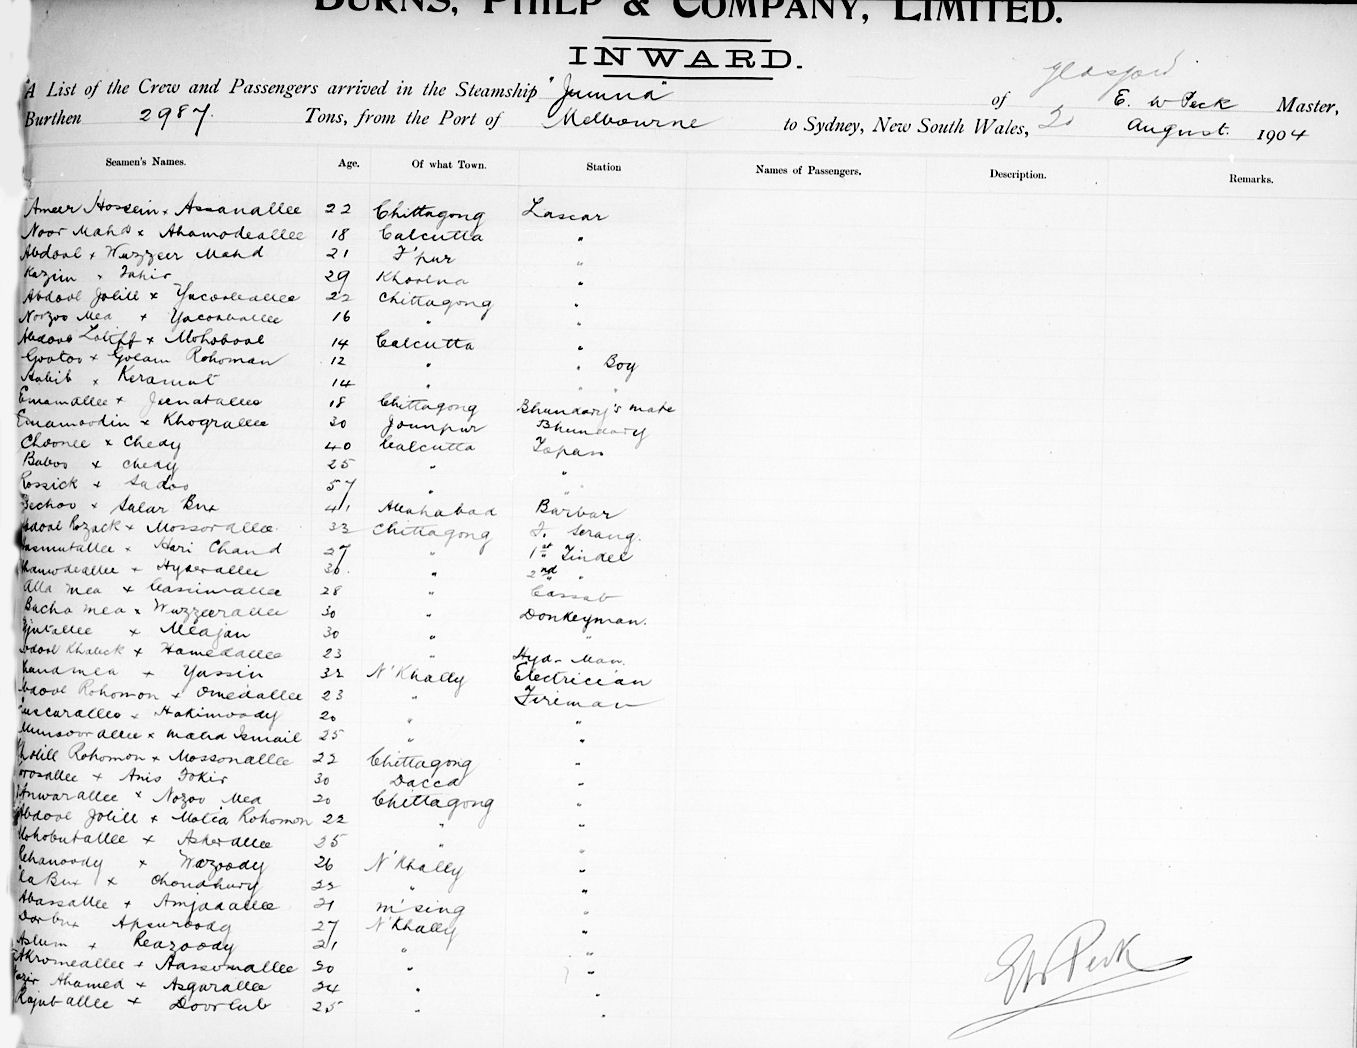 BURNS, PHILP & COMPANY, LIMITED.
INWARD.
A List of the Crew and Passengers arrived in the Steamship "Jumna" of Glasgow E. W Peck Master,
Burthen 2987 Tons, from the Port of Melbourne to Sydney, New South Wales, 20 August 1904
Seamen's Names. Age. Of what Town. Station Names of Passengers. Description. Remarks.
Ameer Hossein x Assanallee 22 Chittagong Lascar
Noor Mahd x Ahamodeallee 18 Calcutta "
Abdool x Wuzzeer Mahd 21 F'pur "
Kazim x Tahir 29 Khoolna "
Abdool Jolill x Yacooballee 22 Chittagong "
Norzoo Mea x Yacooballee 16 " "
Abdool Lotiff x Mohobool 14 Calcutta "
Gootoo x Golam Rohoman 12 " " Boy
Habib x Keramut 14 " " "
Emamallee x Jeenatallee 18 Chittagong Bhundary's mate
Emamoodin x Khograllee 30 Jounpur Bhundary
Choonee x Chedy 40 Calcutta Topas
Baboo x Chedy 25 " "
Rossick x Sadoo 57 " "
Bechoo x Salar Bux 41 Allahabad Barbar
Abdool Rozack x Mossorallee 33 Chittagong F. Serang
x Hari Chand 27 " 1st Tindel
Ahamodeallee x Hyderallee 36 " 2nd "
Alla Mea x Cassimallee 28 " Cassab
Bacha Mea x Wuzzeerallee 30 " Donkeyman.
x Meajan 30 " "
Abdool Khaleck x Hamedallee 23 " Hyd. Man.
x Yassin 32 N'Khally Electrician
Abdool Rohomon x Omedallee 23 " Fireman
x Hakimoody 20 " "
Munsoorallee x Mahd Ismail 25 " "
Kholill Rohomon x Mossonallee 22 Chittagong "
x Anis Fokir 30 Dacca "
Anwarallee x Nozoo Mea 20 Chittagong "
Abdool Jolill x Motia Rohomon 22 " "
Mohobutallee x Asherallee 25 " "
x Wazoody 26 N'Khally "
x Choudhury 22 " "
Abassallee x Amjadallee 21 M'sing "
Apsuroody 27 N'Khally "
Aslum x Reazoody 21 " "
Akromeallee x Aassomallee 20 " "
Nozir Ahamed x Asgarallee 24 " "
Rajuballee x Doorlub 25 " "
EW Peck